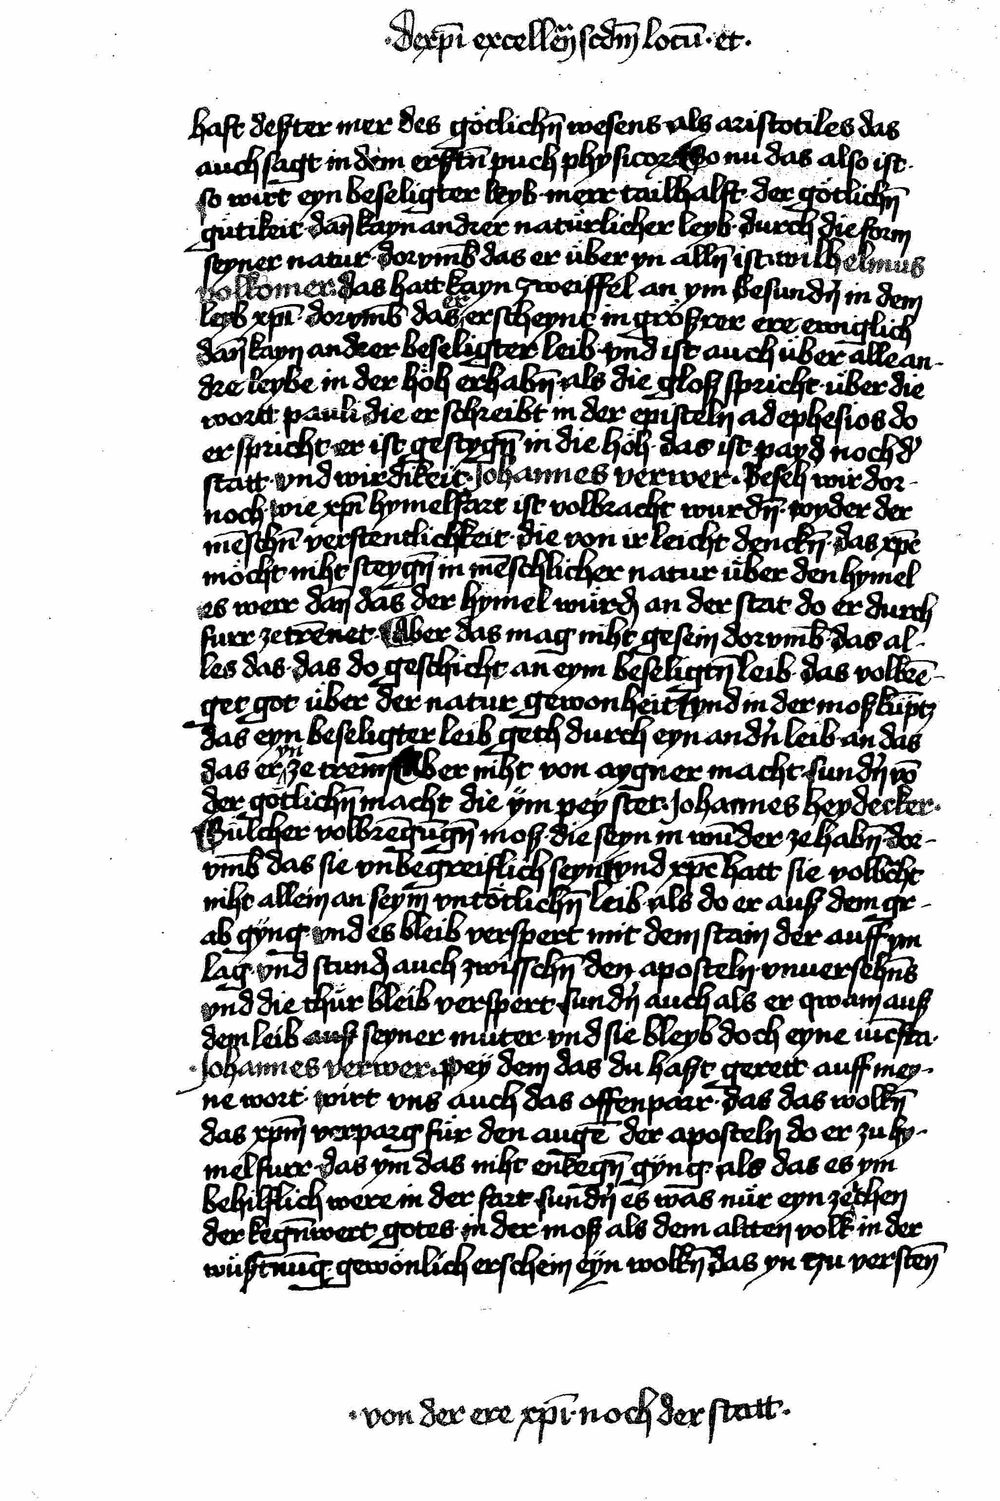 ·De xp̄i excellen̄ scdm̄ locū·et·
haft dester mer des götlichn̄ wesens als aristotiles das
auch sagt in dem erstn̄ puch physicor So nu das also ist·
so wirt eyn beseligter leyb merr tailhafft der götlichn̄
gütikeit dan̄ kayn andrer natürlicher leyb durch die form
seyner natur dorvmb das er über yn alln̄ ist·wilhelmus
volkomer·das hatt kayn zweiffel an ym besundn̄ in dem
leyb xp̄i dorvmb das er erscheynt in größrer ere ewiglich
dan̄ kayn andrer beseligter leib vnd ist auch über alle an-
dre leybe in der höh erhabn̄ als die gloß spricht über die
wortt pauli die er schreibt in der episteln ad ephesios do
er spricht er ist gestygn̄ in die höh das ist payd noch d'
statt vnd wirdikeit·Johannes verwer·Beseh wir dor-
noch wie xp̄i hymelfart ist volbracht wurdn̄ wyder der
mēschn̄ verstentlichkeit die von ir leicht denckn̄ das xp̄c
möcht niht steygn̄ in mēschlicher natur über den hymel
es werr dan̄ das der hymel würd an der stat do er durch
furr zetrēnet·Aber das mag niht gesein dorvmb das al-
les das das do geschicht an eym beseligtn̄ leib das volbrē-
get got über der natur gewonheit vnd in der moß küpts
das eyn beseligter leib geth durch eyn andn̄ leib an das
das er yn zetrenn Aber niht von aygner macht sundn̄ vō
der götlichn̄ macht die ÿm pey stet·Johannes heydecker·
Sülcher volbrēgūgn̄ moß die seyn in wūder zehabn̄ dor-
vmb das sie vnbegreiflich seyn vnd xp̄c hatt sie volbc̄ht
niht allein an seym vntötlichn̄ leib als do er auß dem gr-
ab gyng vnd es bleib verspert mit dem stain der auff ym
lag vnd stund auch zwisschn̄ den aposteln vnuersehn̄s
vnd die thür bleib verspert sundn̄ auch als er qwam auß
dem leib auß seyner muter vnd sie bleyb doch eyne iūcfra·
·Johannes verwer·Pey dem das du hast gerett auff mey-
ne wort wirt vns auch das offenparr das das wolkn̄
das xp̄m verparg für den augē der aposteln do er zu hy-
mel furr das ym das niht enkegn̄ gyng als das es ym
behilflich were in der fart sundn̄ es was nür eyn zeichen
der kegn̄wert gotes in der moß als dem altten volk in der
wüstnūg gewönlich erschein eyn wolkn̄ das yn tzu versten̄
·von der ere xp̄i·noch der statt·